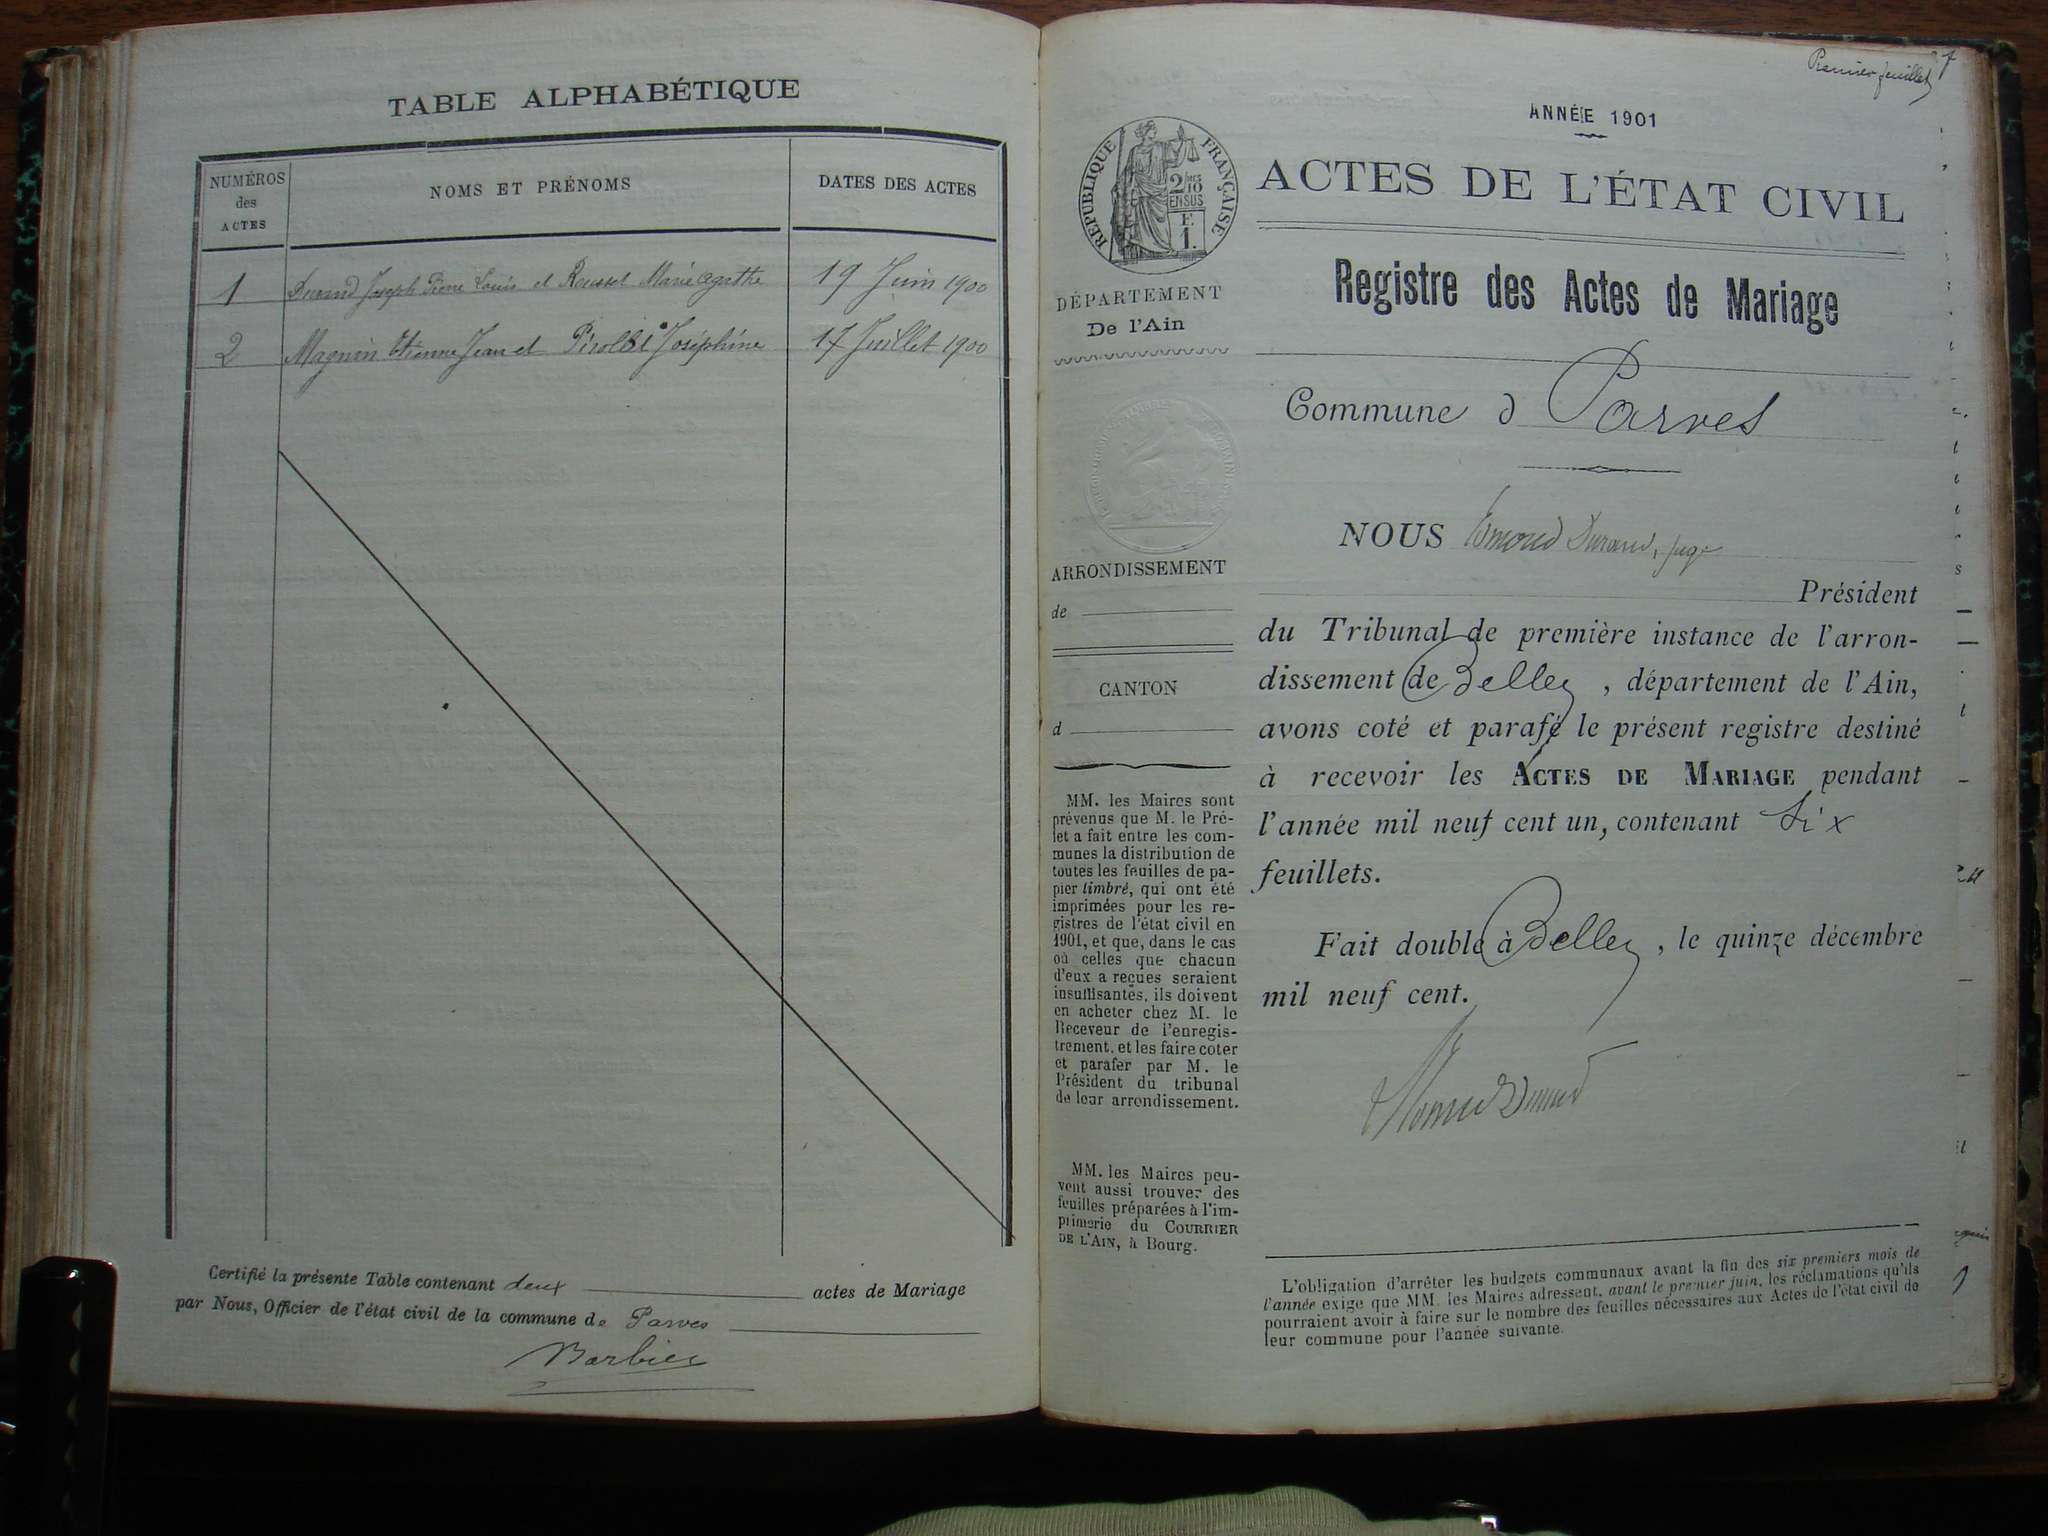 TABLE ALPHABÉTIQUE
NUMÉROS
des
ACTES
NOMS ET PRÉNOMS
DATES DES ACTES
1 Durand Joseph Pierre Louis et Rousset Marie Agathe 19 Juin 1900
2 Magnin Etienne Jean et Pirollet Joséphine 17 Juillet 1900
Certifié la présente Table contenant deux actes de Mariage
par Nous, Officier de l'état civil de la commune de Parves
Barbier
Premier feuillet
ANNÉE 1901
RÉPUBLIQUE FRANÇAISE
2/10
EN SUS
F.
1.
DÉPARTEMENT
De l'Ain
ARRONDISSEMENT
de
CANTON
d
MM. les Maires sont
prévenus que M. le Pré-
fet a fait entre les com-
munes la distribution de
toutes les feuilles de pa-
pier timbré, qui ont été
imprimées pour les re-
gistres de l'état civil en
1901, et que, dans le cas
où celles que chacun
d'eux a reçues seraient
insuffisantes, ils doivent
en acheter chez M. le
Receveur de l'enregis-
trement, et les faire coter
et parafer par M. le
Président du tribunal
de leur arrondissement.
MM. les Maires peu-
vent aussi trouver des
feuilles préparées à l'im-
primerie du COURRIER
DE L'AIN, à Bourg.
ACTES DE L'ÉTAT CIVIL
Registre des Actes de Mariage
Commune d Parves
NOUS Edmond Durand, juge
Président
du Tribunal de première instance de l'arron-
dissement de Belley, département de l'Ain,
avons coté et parafé le présent registre destiné
à recevoir les ACTES DE MARIAGE pendant
l'année mil neuf cent un, contenant six
feuillets.
Fait double à Belley, le quinze décembre
mil neuf cent.
L'obligation d'arrêter les budgets communaux avant la fin des six premiers mois de
l'année exige que MM. les Maires adressent, avant le premier juin, les réclamations qu'ils
pourraient avoir à faire sur le nombre des feuilles nécessaires aux Actes de l'état civil de
leur commune pour l'année suivante.